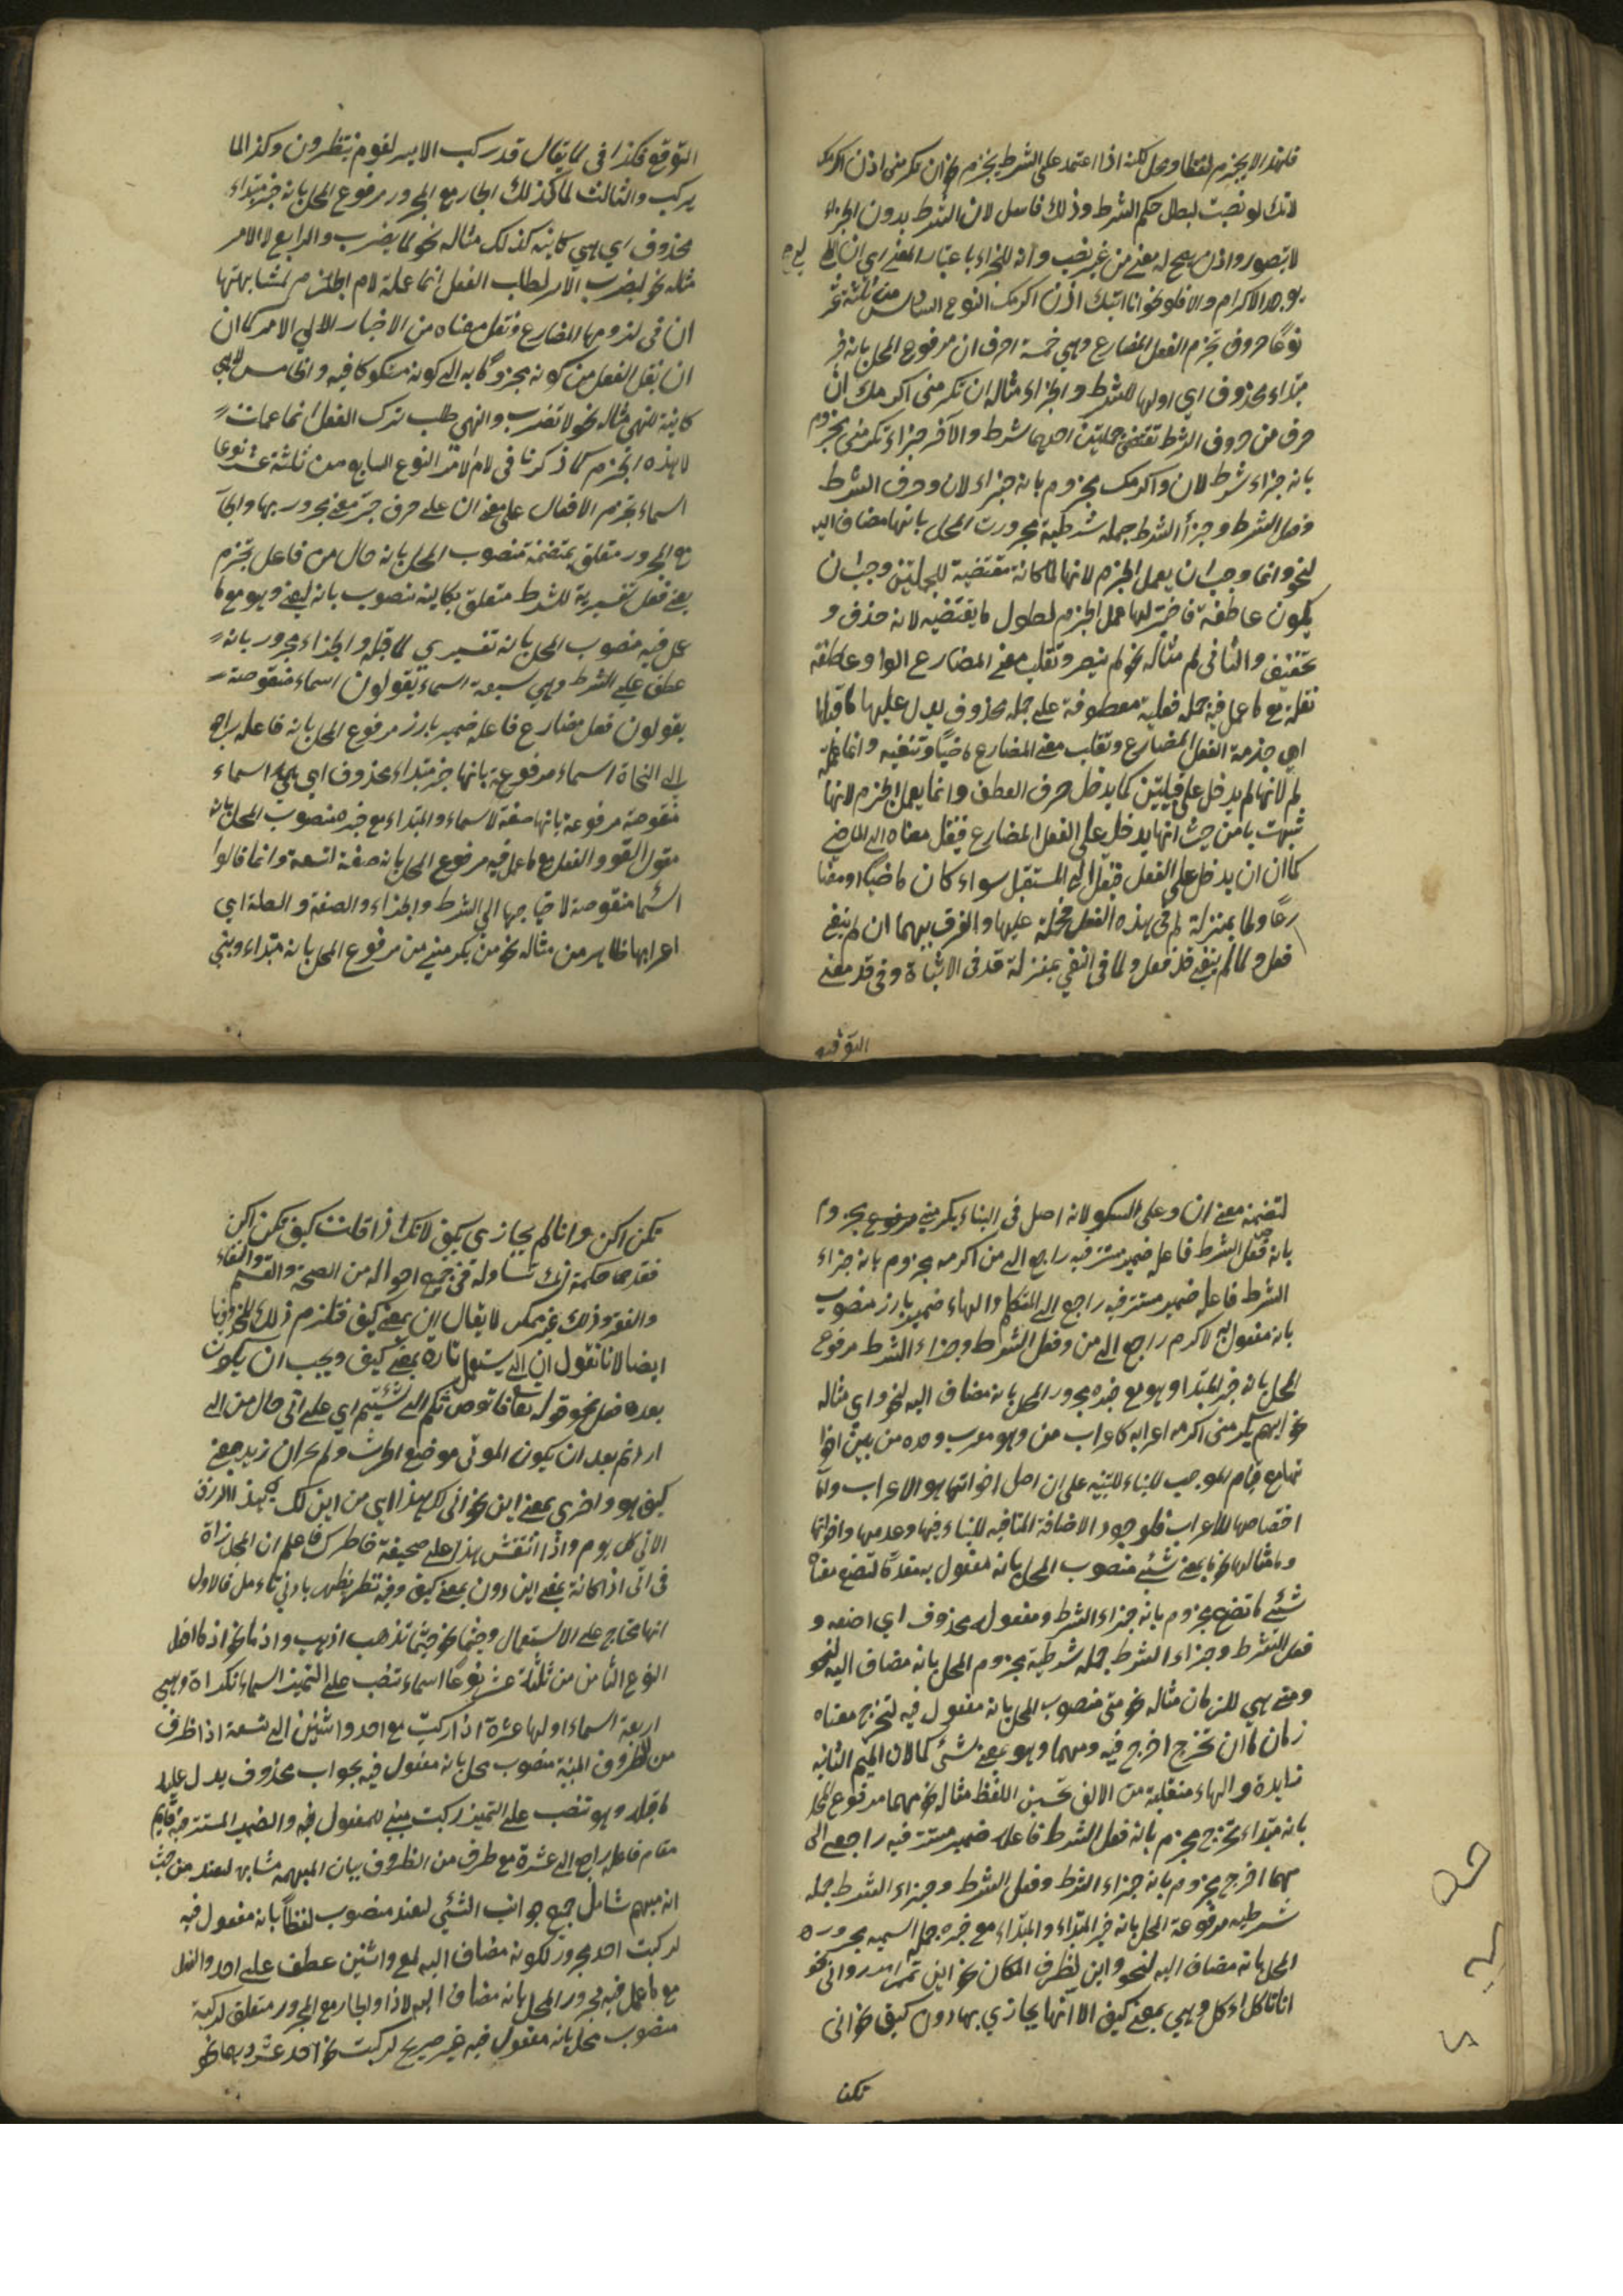 فلهذا لا يجزم لفظا ومحل لكنه اذا اعتمد على الشرط يجزم نحو ان تكرمنى اذن اكرمك
لانك لو نصبت لبطل حكم الشرط وذلك فاسل لان الشرط بدون الجزاء
لا يتصور واذن يصح له معنے من غير نصب وانه للجزاء باعتبار المعنے اى ان
يوجد الاكرام والا فلو نحو انا اتيك اذن اكرمك النوع السادس من ثلثة عشر
نوعًا حروف تجزم الفعل المضارع وهي خمسة احرف ان مرفوع المحل بانه خبر
مبتداء محذوف اي اولها للشرط والجزاء مثاله ان تكرمنى اكرمك ان
حرف من حروف الشرط تقتضى جملتين احديهما شرط والآخر جزاء تكرمنى مجزوم
بانه جزاء شرط لان واكرمك مجزوم بانه جزاء لان وحرف الشرط
وفعل الشرط وجزأ الشرط جمله شرطية مجرورت المحل بانها مضاف اليه
لنحو وانما وجب ان يعمل الجزم لانها لما كانة مقتضية للجملتين وجب ان
يكون عاطفة فاختير لها عمل الجزم لطول ما يقتضيه لانه حذف و
تخفيف والثانى لم مثاله نحو لم ينصر وتقلب معنے المضارع الواو عاطفة
تقلب مع ما عمل فيه جمله فعلية معطوفة علے جمله محذوف يدل عليها ما قبلها
اي جزمة الفعل المضارع وتقلب معنے المضارع ماضيًا وتنفيه وانما
لم لانها لم يدخل على قبيلتين كما يدخل حرف العطف وانما يعمل الجزم لانها
شبهت بان من حيث انها يدخل على الفعل المضارع فينقل معناه الى الماضے
كما ان ان يدخل على الفعل فينقل الى المستقبل سواء كان ماضيًا او مضا
رعًا ولما بمنزلة لم فى هذه الفعل محمله عليها والفرق بينهما ان لم ينفے
فعل ولما لم ينفے قد فعل ولما فى النفي بمنزلة قد فى الاثباة وفى قد معنے
التوقع
التوقع فكذا فى لما يقال قد ركب الامير لقوم ينتظرون وكذا لما
يركب والثالث لما كذلك الجار مع المجرور مرفوع المحل بانه خبر مبتداء
محذوف اي هي كاينة كذلك مثاله نحو لما يضرب والرابع لا الامر
مثله نحو ليضرب الامر لطلب الفعل انما عملة لام الجازم لمشابهتها
ان فى لزومها المضارع ونقل معناه من الاخبار الى الامر كما ان
ان ينقل الفعل من كونه مجزومًا به الى كونه مشكوكا فيه والخامس لا هي
كاينة للنهي مثاله نحو لا تضرب والنهي طلب ترك الفعل انما عملت
لا هذه الجزم كما ذكرنا فى لام الامر النوع السابع من ثلثة عشر نوعا
اسماء تجزم الافعال على معنے ان علے حرف جر معنے مجرور بها والجار
مع المجرور متعلق بمتضمنة منصوب المحل بانه حال من فاعل تجزم
يعنے فعل تفسيرية للشرط متعلق بكاينه منصوب بانه ليعنے وهو مع ما
عمل فيه منصوب المحل بانه تفسيري لما قبله والجزاء مجرور بانه
عطف علے الشرط وهي سبعة اسماء تقولون اسماء منقوصة
يقولون فعل مضارع فاعله ضمير بارز مرفوع المحل بانه فاعله راجع
الى النحاة اسماء مرفوعة بانها خبر مبتداء محذوف اي هي اسماء
منقوصة مرفوعة بانها صفة لاسماء والمبتداء مع خبره منصوب المحل بانه
مقول القو والفعل مع ما عمل فيه مرفوع المحل بانه صفة اتسعة وانما قالوا
اسما منقوصة لاحتياجها الى الشرط والجزاء والصفة والصلة اي
اعرابها ظاهر من مثاله نحو من يكرمنے من مرفوع المحل بانه مبتداء وبني
لتضمنه معنے ان وعلى السكو لانه اصل فى البناء يكرمنے مرفوع مجزوم
بانه فعل الشرط فاعله ضمير مستتر فيه راجع الى من اكرمه مجزوم بانه جزاء
الشرط فاعله ضمير مستتر فيه راجع الى المتكلم والهاء ضمير بارز منصوب
بانه مفعول لاكرم راجع الى من وفعل الشرط وجزاء الشرط مرفوع
المحل بانه خبر المبتدا وهو مع خبره مجرور المحل بانه مضاف اليه لنحو واي مثاله
نحو ايهم يكرمنى اكرمه اعرابه كاعراب من وهو معرب وحده من بين اخوا
تهامع قيام الموجب للبناء للتنبيه على ان اصل اخواتها هو الاعراب واما
اختصاصها للاعراب فلوجود الاضافة المنافيه للبناء فيها وعدمها واخواتها
وما مثالها نحو ما بمعنے شئے منصوب المحل بانه مفعول به مقدمًا لتضع معناه
شئے ما تضع مجزوم بانه جزاء الشرط ومفعوله محذوف اي اضعه و
فعل الشرط وجزاء الشرط جمله شرطية مجزوم المحل بانه مضاف اليه لنحو
ومتے هي للزمان مثاله نحو متى منصوب المحل بانه مفعول فيه لتخرج معناه
زمان ما ان تخرج اخرج فيه ومهما وهو بمعنے شئ كما لان الميم الثانية
زايدة والهاء منقلبة من الالف تحسين اللفظ مثاله نحو مهما مرفوع المحل
بانه مبتداء تخرج مجزم بانه فعل الشرط فاعله ضمير مستتر فيه راجعے الى
مهما اخرج مجزوم بانه جزاء الشرط وفعل الشرط وجزاء الشرط جمله
شرطيه مرفوعة المحل بانه خبر المبتداء والمبتداء مع خبره جمله اسميه مجروره
المحل بانه مضاف اليه لنحو واين لظرف المكان نحو اين تمر امرر وانى نحو
انا تاكل اءكل وهي بمعنے كيف الا انها يجازي بها دون كيف نحو انى
تكن
تكن اكن وانما لم يجازي بكيف لانك اذا قلت كيف تكن اكن
فقد مما حكمة لك تساوله فى جميع احواله من الصحة والسقم والشفاء
والفقر وذلك غير ممكن لا يقال ان بمعنے كيف فتلزم ذلك المحذوف فيها
ايضا لانا نقول ان انى يستعمل تارة بمعنے كيف ويجب ان يكون
بعده فعل نحو قوله تعا فاتوا حرثكم انى شئتم اي على اى حال من الى
اردتم بعد ان يكون الموتى موضع الحرث ولم يجز ان زيد بمعنے
كيف هو واخرى بمعنے اين نحو انى لك هذا اي من اين لك هذا الرزق
الاتى كل يوم واذا انتقش هذا على صحيفة خاطرك فاعلم ان المجازاة
فى انى اذا كانة بمعنے اين دون بمعنے كيف وفيه نظر يظهر بادنى تاءمل فالاول
انها محتاج على الاستعمال وحيثما نحو حيثما تذهب اذهب واذما نحو اذ ما افعل
النوع الثامن من ثلثة عشر نوعًا اسماء تنصب على التميز اسماء نكراة وهي
اربعة اسماء اولها عشرة اذا ركبت مع احد واثنين الى تسعة اذا ظرف
من الظروف المبنية منصوب محل بانه مفعول فيه بجواب محذوف يدل عليه
ما قبله وهو تنصب على التميز ركبت مبنے للمفعول فيه والضمير المستتر فيه قايم
مقام فاعله راجع الى عشرة مع ظرف من الظروف بيان المبهمه مشابه لعند من حيث
انه مبهم شامل جميع جوانب الشئے لعند منصوب لفظًا بانه مفعول فيه
لركبت احد مجرور لكونه مضاف اليه لمع واثنين عطف على احد والفعل
مع ما عمل فيه مجرور المحل بانه مضاف اليه لاذا والجار مع المجرور متعلق لركبة
منصوب محل بانه مفعول فيه غير صريح لركبت نحو احد عشر درهما نحو